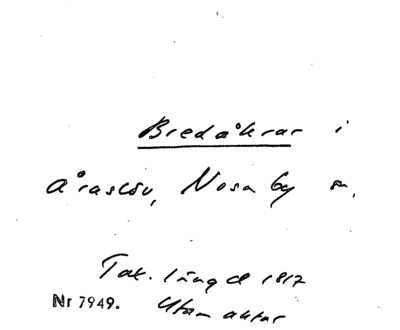 Bredåkrar i
Åraslöv, Nosaby sn,
Tax. längd 1817
Nr 7949. Utan aktar